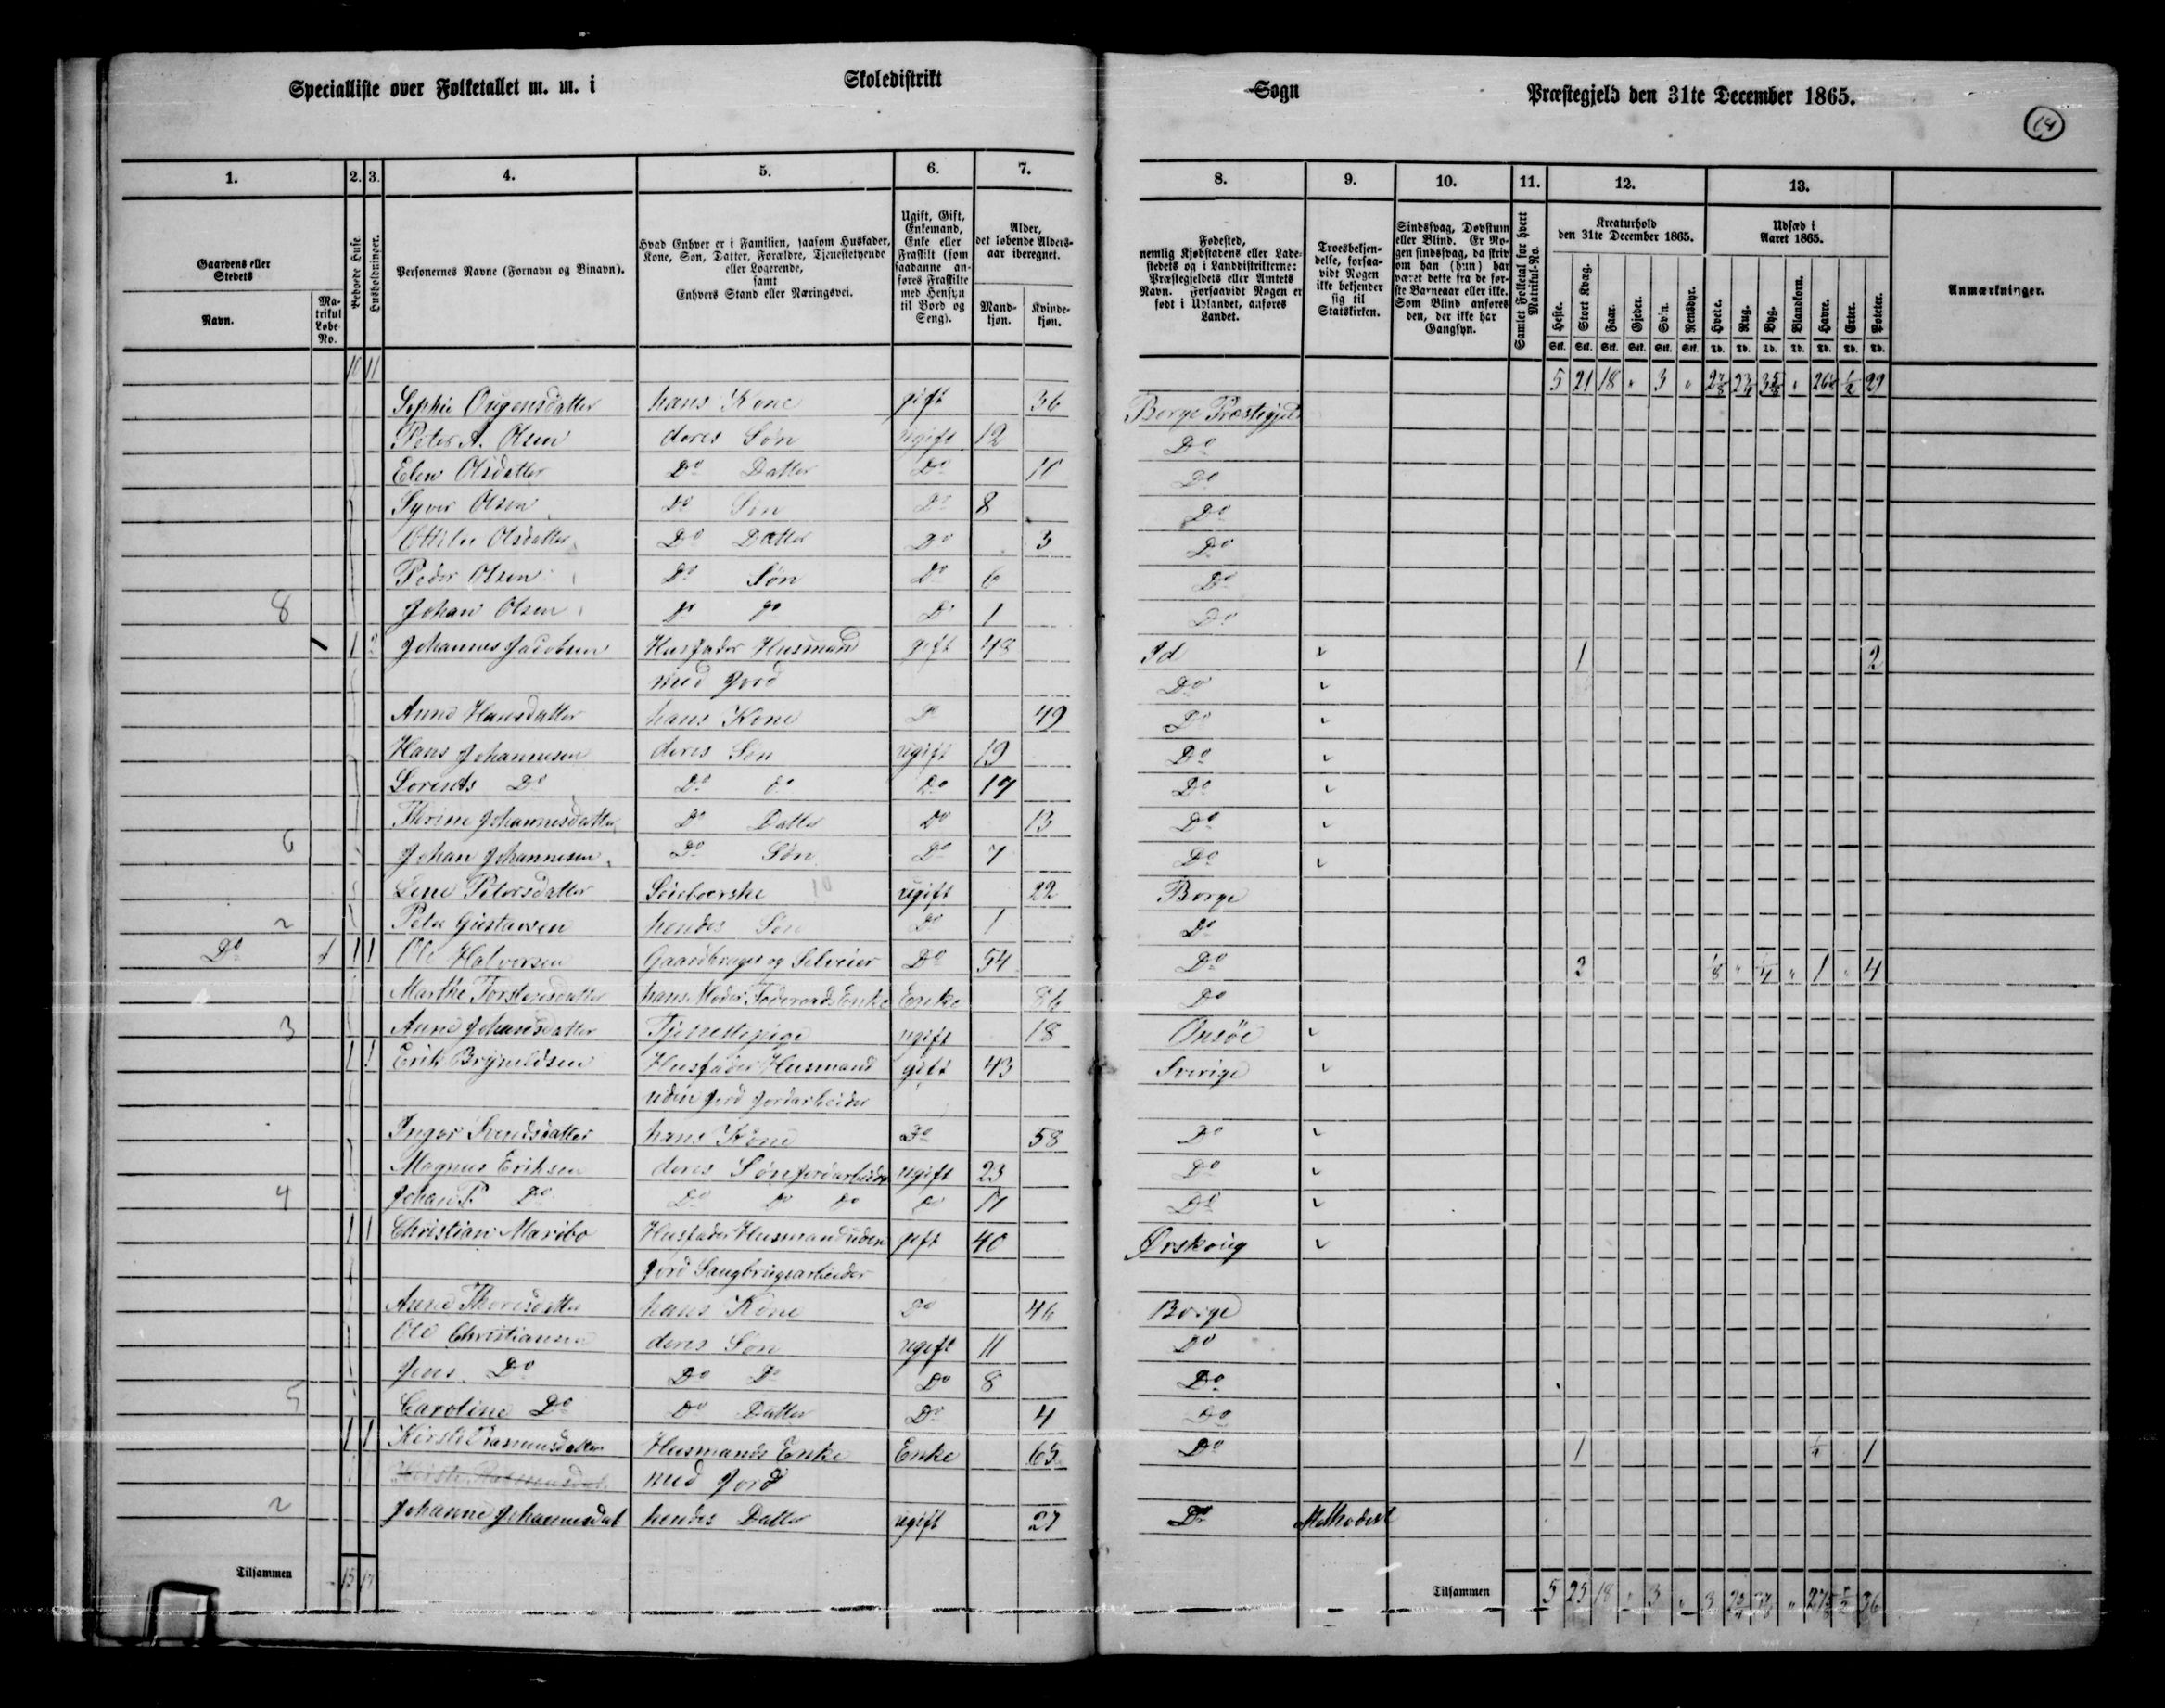 Specialliste over Folketallet m. m. i Skoledistrikt Sogn Præstegjeld den 31te December 1865.
1. 2. 3. 4. 5. 6. 7. 8. 9. 10. 11. 12. 13.
Gaardens eller Stedets
Navn.
Matrikul Løbe-No.
Beboede Huse.
Husholdninger.
Personernes Navne (Fornavn og Binavn).
Hvad Enhver er i Familien, saasom Husfader, Kone, Søn, Datter, Forældre, Tjenestetyende eller Logerende, samt Enhvers Stand eller Næringsvei.
Ugift, Gift, Enkemand, Enke eller Fraskilt (som saadanne anføres Fraskilte med Hensyn til Bord og Seng).
Alder, det løbende Aldersaar iberegnet.
Mandkjøn. Kvindekjøn.
Fødested, nemlig Kjøbstadens eller Ladestedets og i Landdistrikterne: Præstegjeldets eller Amtets Navn. Forsaavidt Nogen er født i Udlandet, anføres Landet.
Troesbekjendelse, forsaavidt Nogen ikke bekjender sig til Statskirken.
Sindssvag, Døvstum eller Blind. Er Nogen sindssvag, da skriv om han (hun) har været dette fra de første Barneaar eller ikke. Som Blind anføres den, der ikke har Gangsyn.
Samlet Folketal for hvert Matrikul-No.
Kreaturhold den 31te December 1865.
Heste. Stort Kvæg. Faar. Gjeder. Sviin. Rensdyr.
Stk. Stk. Stk. Stk. Stk. Stk.
Udsæd i Aaret 1865.
Hvede. Rug. Byg. Blandkorn. Havre. Erter. Poteter.
Td. Td. Td. Td. Td. Td. Td.
Anmærkninger.
10 11 5 21 18 " 3 " 29
Sophie hans Kone gift 36 Borge Præstegjeld
Peter A. Olsen deres Søn ugift 12 Do
Elen Olsdatter Do Datter Do 10 Do
Syver Olsen Do Søn Do 8 Do
Ottilie Olsdatter Do Datter Do 3 Do
Peder Olsen Do Søn Do 6 Do
8 Johan Olsen Do Do Do 1 Do
1 2 Johannes Jacobsen Husfader Husmand gift 48 Id 1 2
med Jord Do
Anne Hansdatter hans Kone Do 49 Do
Hans Johannesen deres Søn ugift 19 Do
Lorents Do Do Do Do 17 Do
Thrine Johannesdatter Do Datter Do 13 Do
6 Johan Johannesen Do Søn Do 7 Do
Lene Petersdatter 10 ugift 22 Borge
2 Peter Gustavsen hendes Søn Do 1 Do
Do 1 1 Ole Halvorsen Gaardbruger og Selveier Do 54 Do 2 1/8 " 1/4 " 1 " 4
Marthe Torstensdatter hans Moder Føderaads Enke Enke 86 Do
3 Anne Johansdatter Tjenestepige ugift 18 Onsöe
1 1 Erik Brynildsen Husfader Husmand gift 43 Sverige
uden Jord Jordarbeider
Inger Svendsdatter hans Kone Do 58 Do
Magnus Eriksen deres Søn Jordarbeider ugift 23 Do
4 Johan P. Do Do Do Do Do 17 Do
1 1 Christian Maribo Husfader Husmand uden gift 40 Ørskoug
Jord Saugbrugsarbeider
Anne Thoresdatter hans Kone Do 46 Borge
Ole Christiansen deres Søn ugift 11 Do
Jens Do Do Do Do 8 Do
5 Caroline Do Do Datter Do 4 Do
1 1 Kirsti Rasmusdatter Husmands Enke Enke 65 Do 1 1
med Jord
2 Johanne Johannesdat hendes Datter ugift 27 Do Methodist
Tilsammen 15 17 Tilsammen 5 25 18 " 3 " 3 " 36